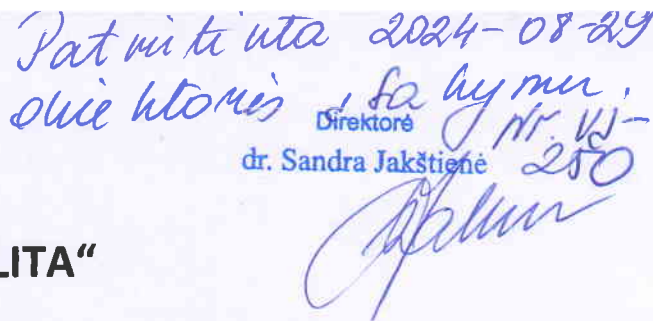 Patvirtinta 2024-08-29
direktorės įsakymu,
Nr. VJ-
Direktorė
dr. Sandra Jakštienė 250
LITA“